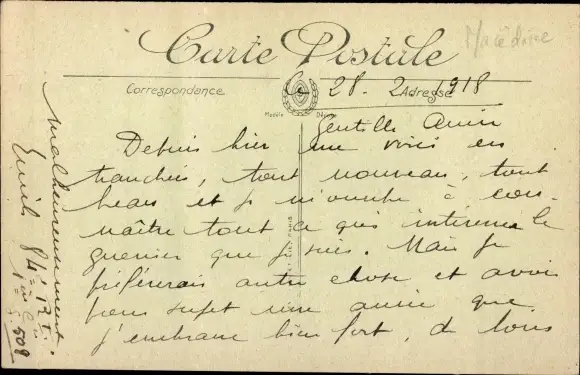 Carte Postale
Macédoine
Correspondance
Adresse
Modèle Déposé
Le 28. 2. 1918
Gentille Amie
Depuis hier me voici en
tranchées, tout nouveau, tout
beau et je m'ennuie à con-
naître tout ce qui intéresse le
guerrier que je suis. Mais je
préférerais autre chose et avoir
pour sujet une amie que
j'embrasse bien fort, de tous
Malheureusement.
Emile 84e 17e
508